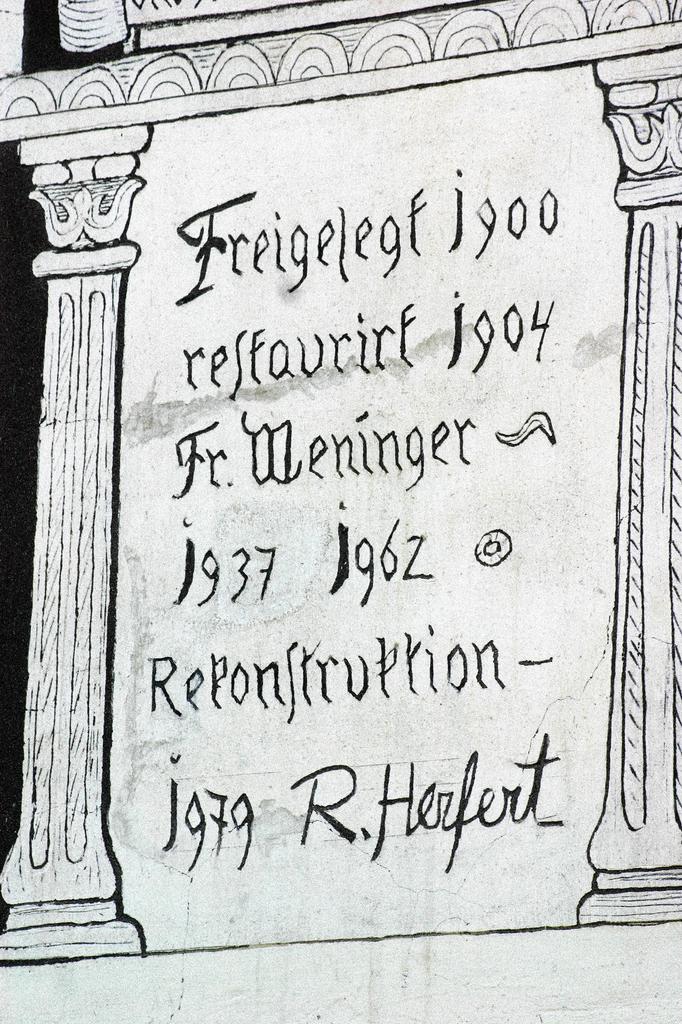 Freigelegt 1900
reſtaurirt 1904
Fr. Meninger
1937 1962
Rekonſtruktion –
1979 R. Herfert